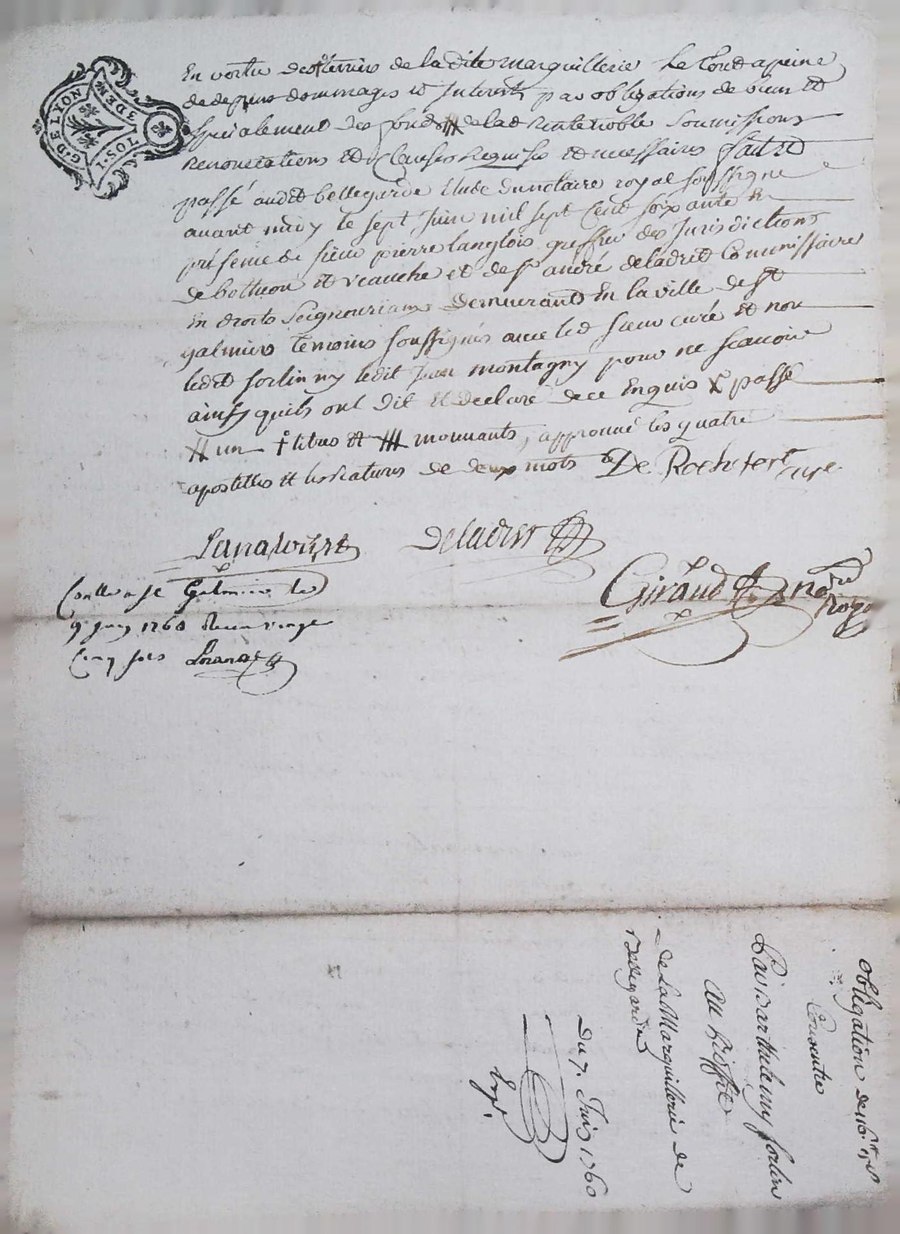 G·D·LYON
3 DEN
1·SOL
En vertu des terriers de la dite marguillerie Le tout a peine
de depens dommages et Interets par obligations de bien et
spécialement des fonds de lad Rente noble soumissions
Renonciations et Clauses Requises et necessaires fait et
passé audit bellegarde Etude du notaire royal soussigné
avant midy le sept Juin mil sept Cent soixante En
présence de sieur pierre langlois greffier des Jurisdictions
de botheon et veauche et de sr andré deladret Commissaire
En droits Seigneuriaux demeurant En la ville de st
galmier temoins soussignés avec led sieur curé et non
ledit forlin ny ledit Jean montagny pour ne scavoir
ainsy quils ont dit et declaré de ce Enquis X passé
un titres et mouvants, approuvé les quatre
apostilles et les ratures de deux mots De Rochefort
curé
Langlois Deladret
Giraud nore
Royal
Conlle a St Galmier le
9 juin 1760 Recu vingt
Cinq sols
obligation de
Consentie
Par Barthelemy forlin
Au Proffit
De La Marguillerie de
Bellegarde
Du 7. Juin 1760
Exp.